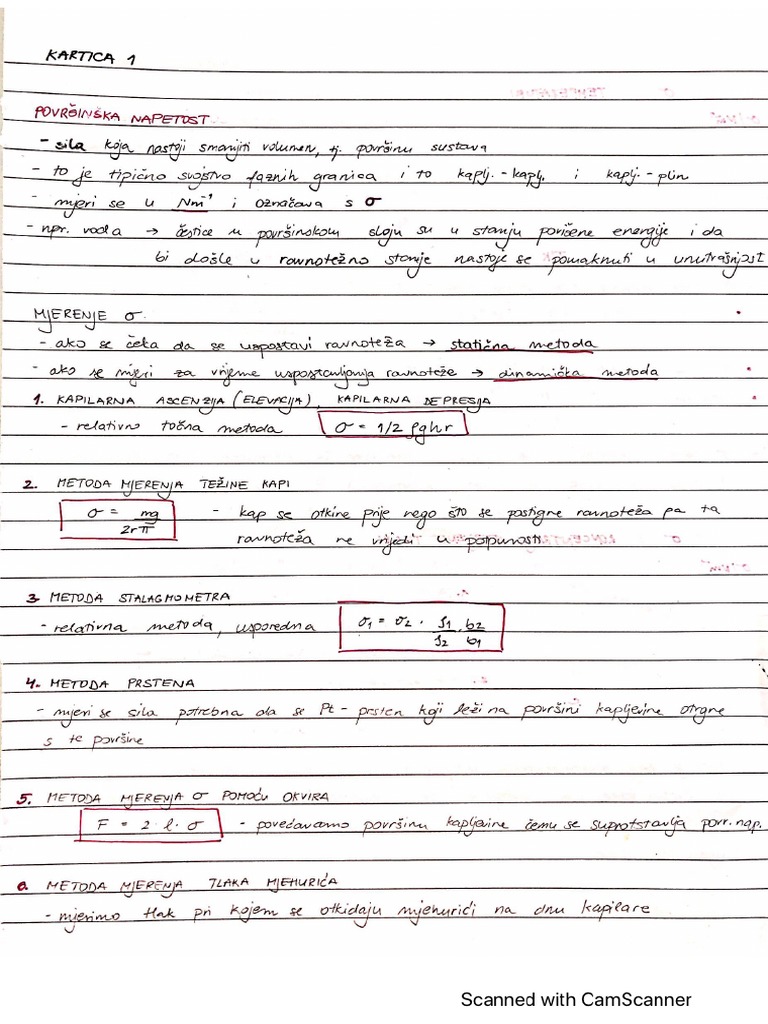 KARTICA 1
POVRŠINSKA NAPETOST
- sila koja nastoji smanjiti volumen, tj. površinu sustava
- to je tipično svojstvo faznih granica i to kaplj.-kaplj. i kaplj.-plin
- mjeri se u Nm⁻¹ i označava s σ
- npr. voda → čestice u površinskom sloju su u stanju povišene energije i da
bi došle u ravnotežno stanje nastoje se pomaknuti u unutrašnjost
MJERENJE σ.
- ako se čeka da se uspostavi ravnoteža → statična metoda
- ako se mjeri za vrijeme uspostavljanja ravnoteže → dinamička metoda
1. KAPILARNA ASCENZIJA (ELEVACIJA), KAPILARNA DEPRESIJA
- relativno točna metoda σ = 1/2 ρghr
2. METODA MJERENJA TEŽINE KAPI
σ = mg / 2rπ - kap se otkine prije nego što se postigne ravnoteža pa ta
ravnoteža ne vrijedi u potpunosti
3 METODA STALAGMOMETRA
- relativna metoda, usporedna σ1 = σ2 · ρ1/ρ2 · b2/b1
4. METODA PRSTENA
- mjeri se sila potrebna da se Pt-prsten koji leži na površini kapljevine otrgne
s te površine
5. METODA MJERENJA σ POMOĆU OKVIRA
F = 2·l·σ - povećavamo površinu kapljevine čemu se suprotstavlja povr. nap.
6. METODA MJERENJA TLAKA MJEHURIĆA
- mjerimo tlak pri kojem se otkidaju mjehurići na dnu kapilare
Scanned with CamScanner